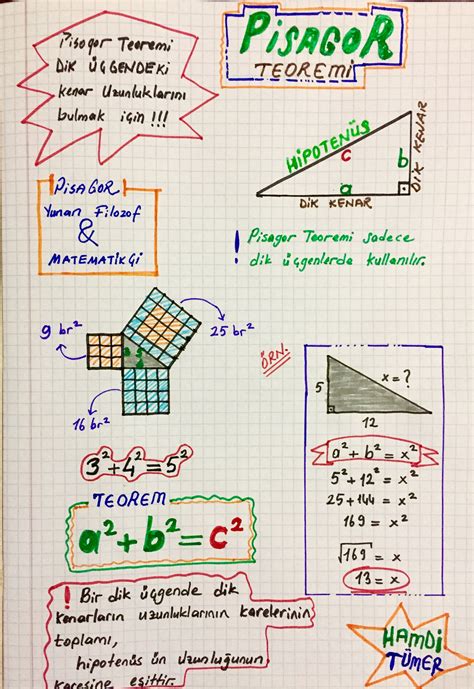 Pisagor Teoremi
DİK ÜÇGENDEKİ
kenar Uzunluklarını
bulmak için !!!
PİSAGOR
TEOREMİ
HİPOTENÜS
c
b
a
DİK KENAR
DİK KENAR
PİSAGOR
Yunan Filozof
&
MATEMATİKÇİ
! Pisagor Teoremi sadece
dik üçgenlerde kullanılır.
9 br²
25 br²
16 br²
3²+4²=5²
ÖRN.
5
x=?
12
a²+b²=x²
5²+12²=x²
25+144=x²
169=x²
√169=x
13=x
TEOREM
a²+b²=c²
! Bir dik üçgende dik
kenarların uzunluklarının karelerinin
toplamı,
hipotenüs ün uzunluğunun
karesine eşittir.
HAMDİ
TÜMER